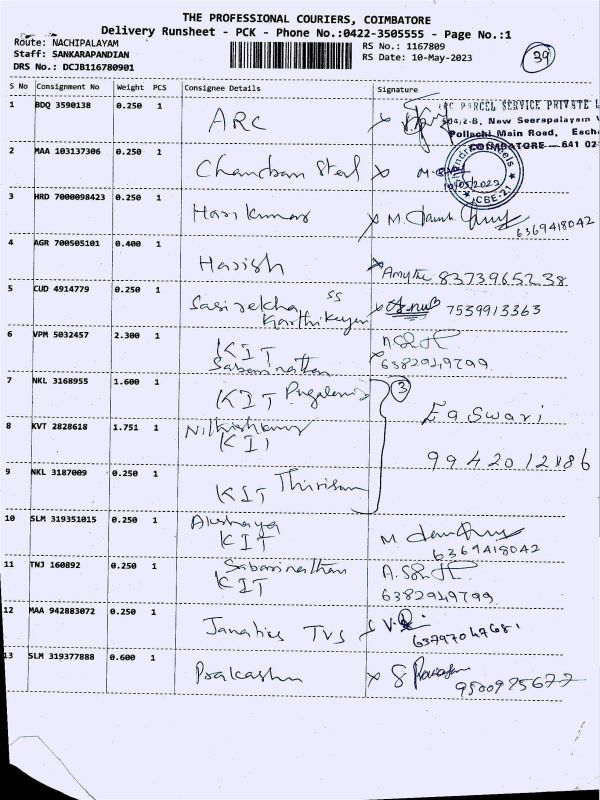 THE PROFESSIONAL COURIERS, COIMBATORE
Delivery Runsheet - PCK - Phone No.:0422-3505555 - Page No.:1
Route: NACHIPALAYAM
Staff: SANKARAPANDIAN
DRS No.: DCJB116780901
RS No.: 1167809
RS Date: 10-May-2023
39
S No Consignment No Weight PCS Consignee Details Signature
1 BDQ 3590138 0.250 1 ARC
PARCEL SERVICE PRIVATE L
504/2-B, New Seerapalayam V
Pollachi Main Road, Each
COIMBATORE - 641 02
2 MAA 103137306 0.250 1 Chandran Steel
10/05/2023
CBE-21
3 HRD 7000098423 0.250 1 Harikumar M.
6369418042
4 AGR 700505101 0.400 1 Harish
Amythe 8373965238
5 CUD 4914779 0.250 1 Sasirekha ss
Karthikeyan
7539913363
6 VPM 5032457 2.300 1 KIT
Sabarinathan
6382949799
7 NKL 3168955 1.600 1 KIT Pugalendi
3
Easwari
8 KVT 2828618 1.751 1 Nithishkumar
KIT
9942012186
9 NKL 3187009 0.250 1 KIT Thirisam
10 SLM 319351015 0.250 1 Akshaya
KIT
M
6369418042
11 TNJ 160892 0.250 1 Sabarinathan
KIT
6382949799
12 MAA 942883072 0.250 1 Janatics TVS
6379704768
13 SLM 319377888 0.600 1 Prakash
9500925677